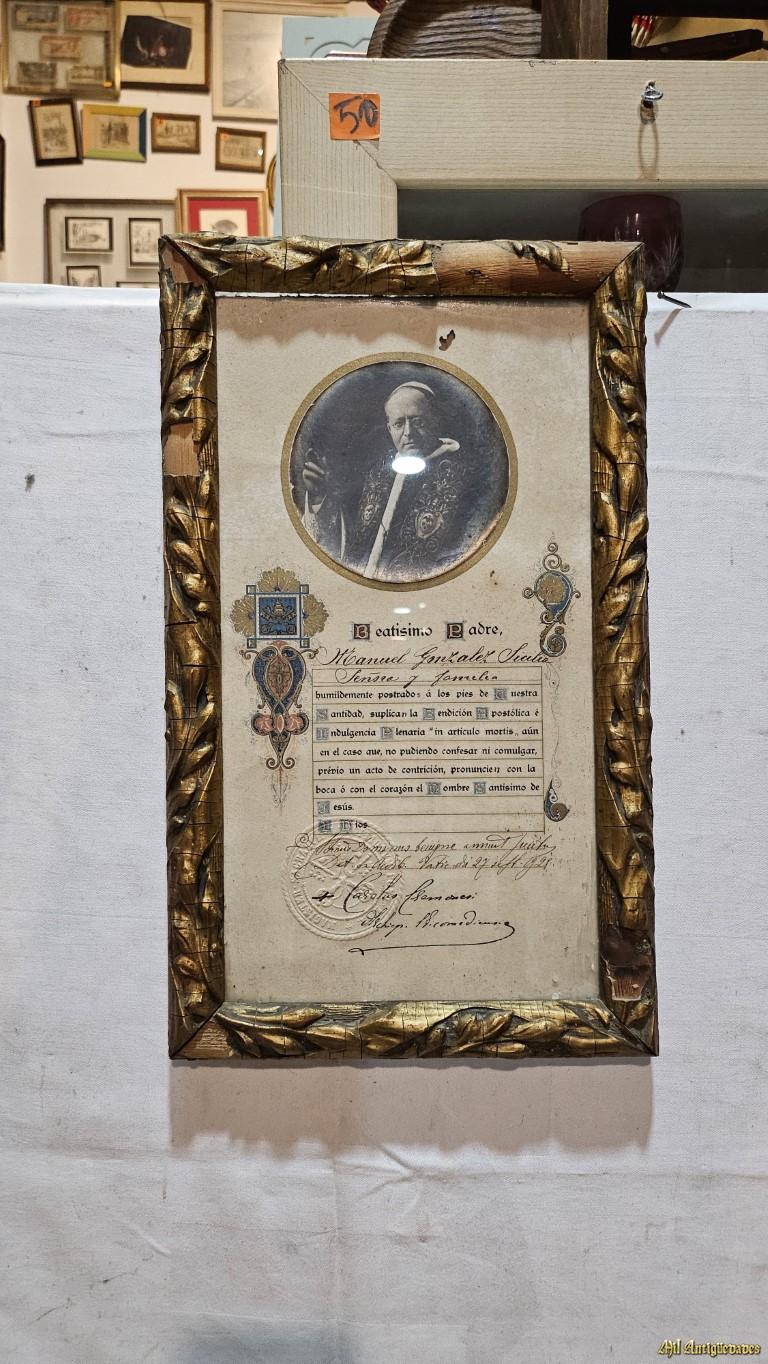 50
Beatisimo Padre,
Manuel Gonzalez Sicilia
y familia
humildemente postrados á los pies de Vuestra
Santidad, suplican la Bendición Apostólica é
Indulgencia Plenaria "in artículo mortis„ aún
en el caso que, no pudiendo confesar ni comulgar,
prévio un acto de contrición, pronuncien con la
boca ó con el corazón el Nombre Santísimo de
Jesús.
Dominus benigne annuit
27 1921
Carolus Cremonesi
Archiep. Nicomediensis
Mil Antigüedades